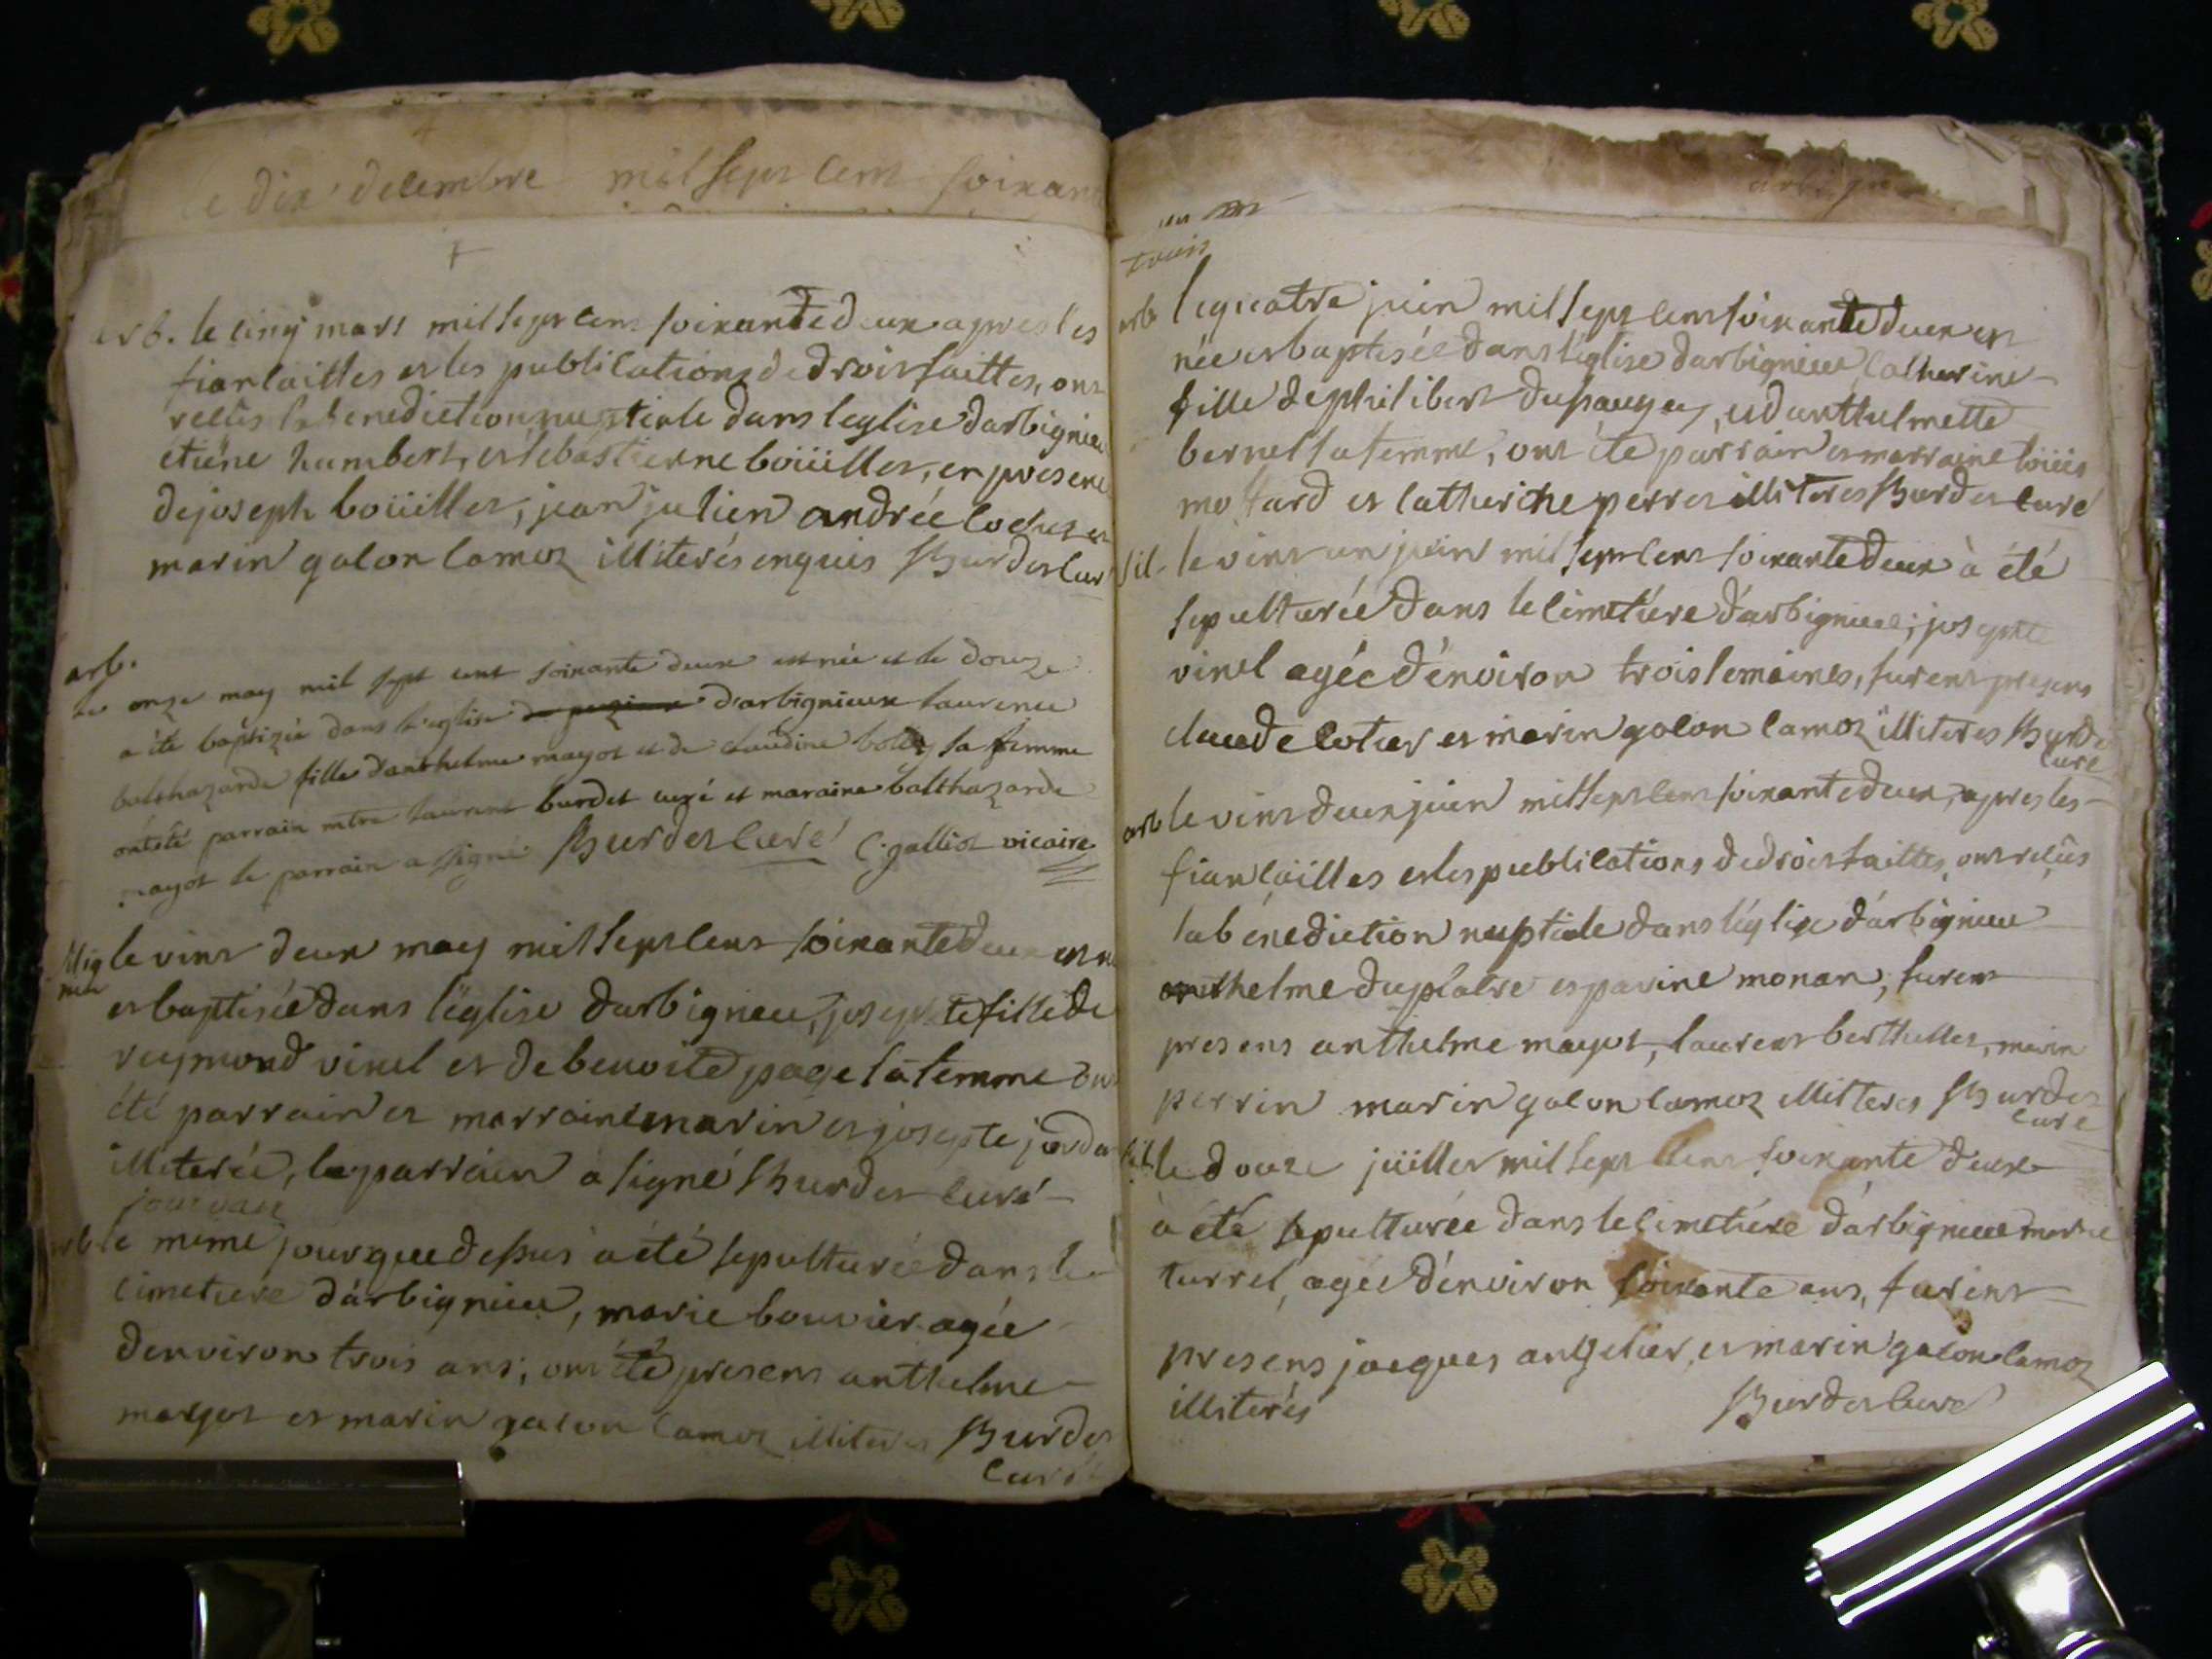 le dix decembre mil sept cent soixan
arb. le cinq mars mil sept cent soixante deux apres les
fiancailles et les publications de droit faittes, ont
recus la benediction nuptiale dans leglise darbignieu
étiéne humbert, et sebastienne boüillet, en presene
de joseph boüillet, jean julien andrée et
marin galon lamoz illiterés enquis Burdet cur
arb.
Le onze may mil sept cent soixante deux est née et le douze
a été baptizée dans l'eglise de pezieux d'arbignieux laurence
balthazarde fille d'anthelme mayot et de claudine sa femme
ont été parrain mtre laurent burdet curé et maraine balthazarde
mayot le parrain a signé Burdet curé C. galliot vicaire
Mig
nieu
le vint deux may mil sept cent soixante deux est n
et baptisée dans l'église darbignieu, josepte fille de
reymond vinel et de benoite page sa femme on
été parrain et marraine marin et josepte jorda
illiterée, le parrain a signé Burdet curé
jourdan
arb le meme jour que dessus a été sepulturée dans le
cimetiere d'arbignieu, marie bouvier agée
denviron trois ans; ont été presens anthelme
mayot et marin galon lamoz illiteres Burdet
curé
trois
arb le quatre juin mil sept cent soixante deux est
née et baptisée dans l'église darbignieu Catherine
fille de philibert et danthelmette
bernet sa femme, ont été parrain et marraine loüis
mottard et catherine perret illiteres Burdet curé
sil. le vint un juin mil sept cent soixante deux à été
sepulturée dans le cimetiére d'arbignieu, josepte
vinel agée d'environ trois semaines, furent presens
claude cotier et marin galon lamoz illiteres Burdet
curé
arb le vint deux juin mil sept cent soixante deux, apres les
fiancàilles et les publications de droit faittes, ont reçûs
la bénédiction nuptiale dans l'église d'arbignieu
anthelme duplatre et pavine monan, furent
presens anthelme mayot, laurent berthellet, marin
perrin marin galon lamoz illiteres Burdet
curé
sil. le douze jüillet mil sept cent soixante deux
à été sepulturée dans le cimetiére d'arbignieu marie
turrel, agée d'environ soixante ans, furent
presens jacques angelier, et marin galon lamoz
illiterés Burdet curé